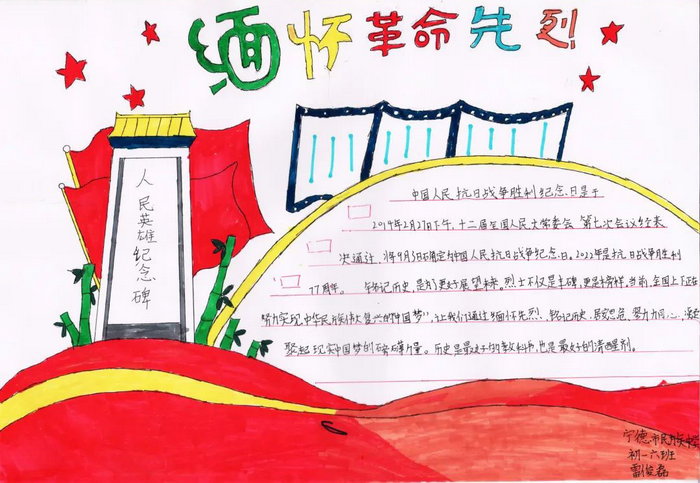 缅怀革命先烈
人民英雄纪念碑
中国人民抗日战争胜利纪念日是于
2014年2月27日下午,十二届全国人民大常委会 第七次会议经表
决通过,将9月3日确定为中国人民抗日战争纪念日。2022年是抗日战争胜利
77周年。 铭记历史,是为了更好展望未来。烈士不仅是丰碑,更是榜样,当前,全国上下正在
努力实现"中华民族伟大复兴的中国梦",让我们通过缅怀先烈、铭记历史、居安思危、努力同心,
聚起现实中国梦的磅礴力量。历史是最好的教科书,也是最好的清醒剂。
宁德市民族中
初一六班
雷俊磊